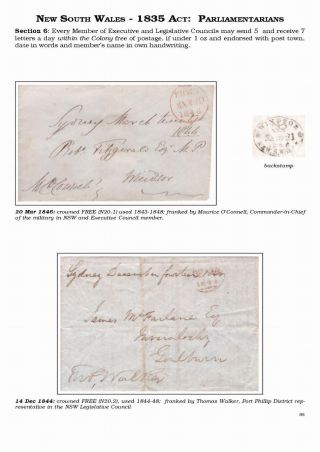 New South Wales - 1835 Act: Parliamentarians
Section 6: Every Member of Executive and Legislative Councils may send 5 and receive 7
letters a day within the Colony free of postage, if under 1 oz and endorsed with post town,
date in words and member's name in own handwriting.
FREE
1846
Sydney March
1846
Fitzgerald Esq M.P
Windsor
WINDSOR
backstamp
20 Mar 1846: crowned FREE (N20.1) used 1843-1848; franked by Maurice O'Connell, Commander-in-Chief
of the military in NSW and Executive Council member.
Sydney December fourteen 1844
James McFarlane Esq
Goulburn
Walker
14 Dec 1844: crowned FREE (N20.2), used 1844-48; franked by Thomas Walker, Port Phillip District rep-
resentative in the NSW Legislative Council